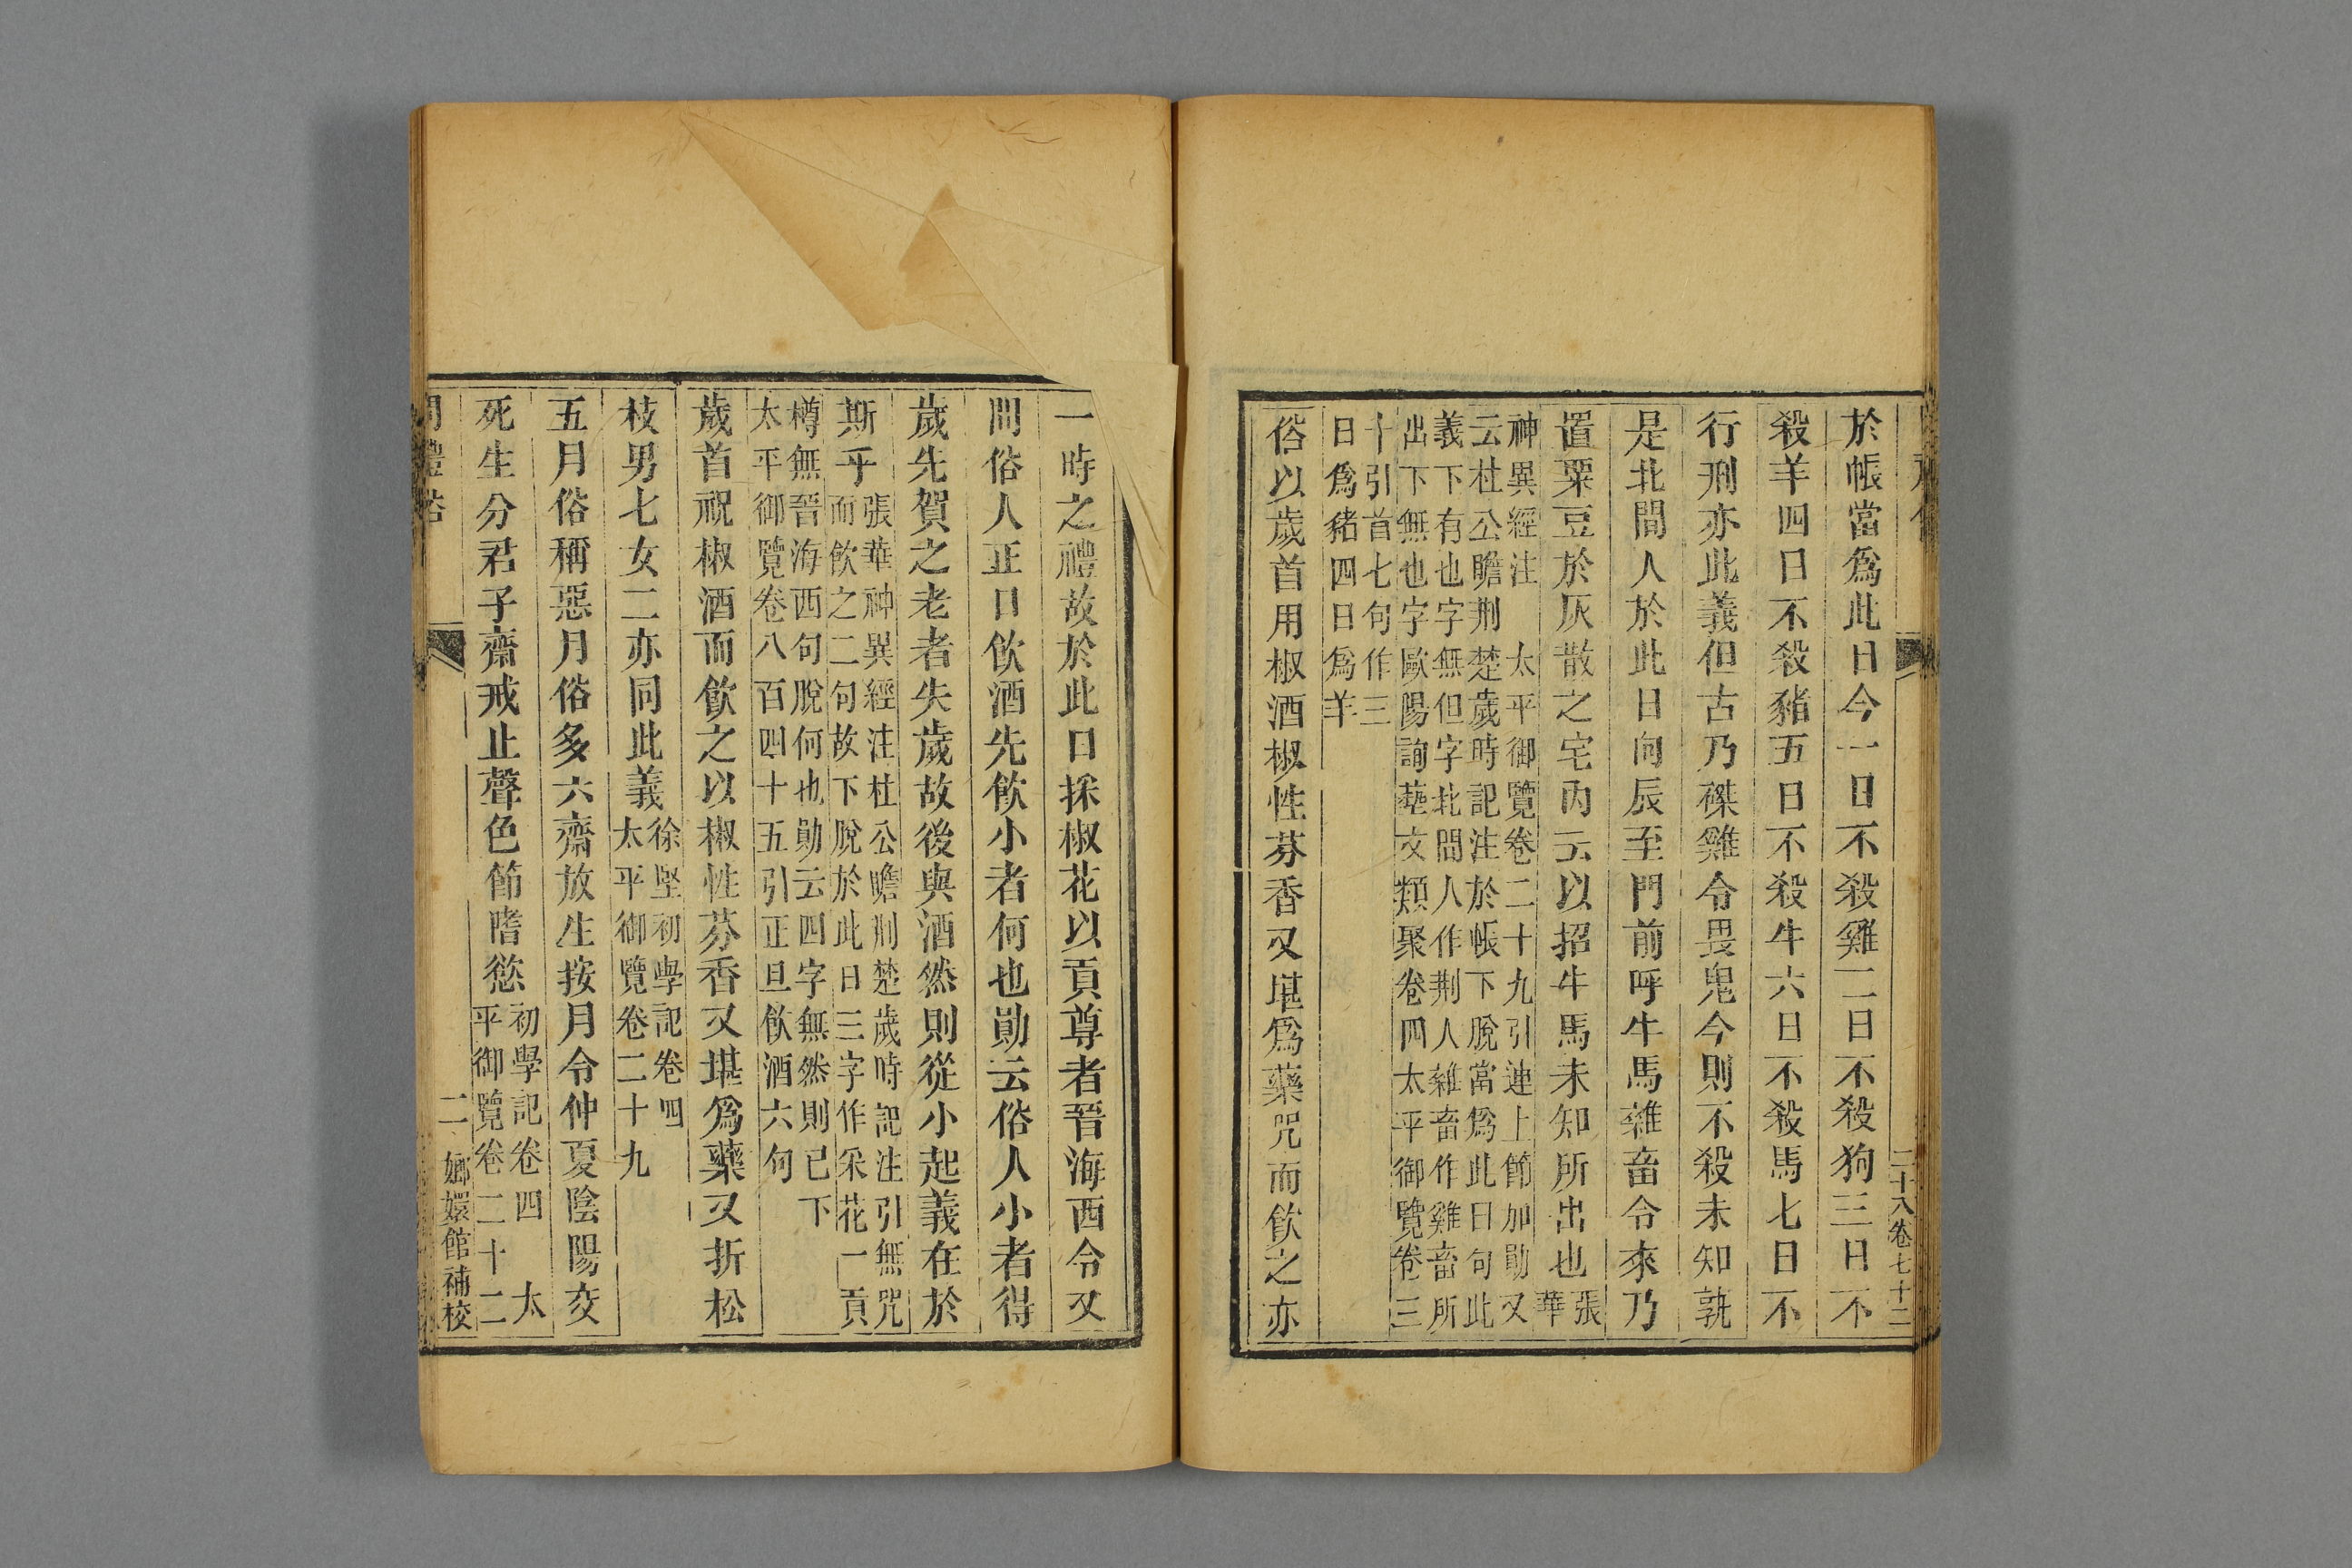 二十八卷七十二
於帳當爲此日今一日不殺雞二日不殺狗三日不
殺羊四日不殺豬五日不殺牛六日不殺馬七日不
行刑亦此義但古乃磔雞令畏鬼今則不殺未知孰
是北間人於此日向辰至門前呼牛馬雜畜令來乃
置粟豆於灰散之宅內云以招牛馬未知所出也張
華
神異經注 太平御覽卷二十九引連上節加勛又
云杜公瞻荆楚歲時記注於帳下脫當爲此日句此
義下有也字無但字北間人作荆人雜畜作雞畜所
出下無也字歐陽詢藝文類聚卷四太平御覽卷三
十引首七句作三
日爲豬四日爲羊
俗以歲首用椒酒椒性芬香又堪爲藥咒而飲之亦
一時之禮故於此日採椒花以貢尊者晉海西令又
問俗人正日飲酒先飲小者何也勛云俗人小者得
歲先賀之老者失歲故後與酒然則從小起義在於
斯乎張華神異經注杜公瞻荆楚歲時記注引無咒
而飲之二句故下脫於此日三字作采花一貢
樽無晉海西句脫何也勛云四字無然則已下
太平御覽卷八百四十五引正旦飲酒六句
歲首祝椒酒而飲之以椒性芬香又堪爲藥又折松
枝男七女二亦同此義徐堅初學記卷四
太平御覽卷二十九
五月俗稱惡月俗多六齋放生按月令仲夏陰陽交
死生分君子齋戒止聲色節嗜慾初學記卷四 太
平御覽卷二十二
問禮俗
二 嫏嬛館補校